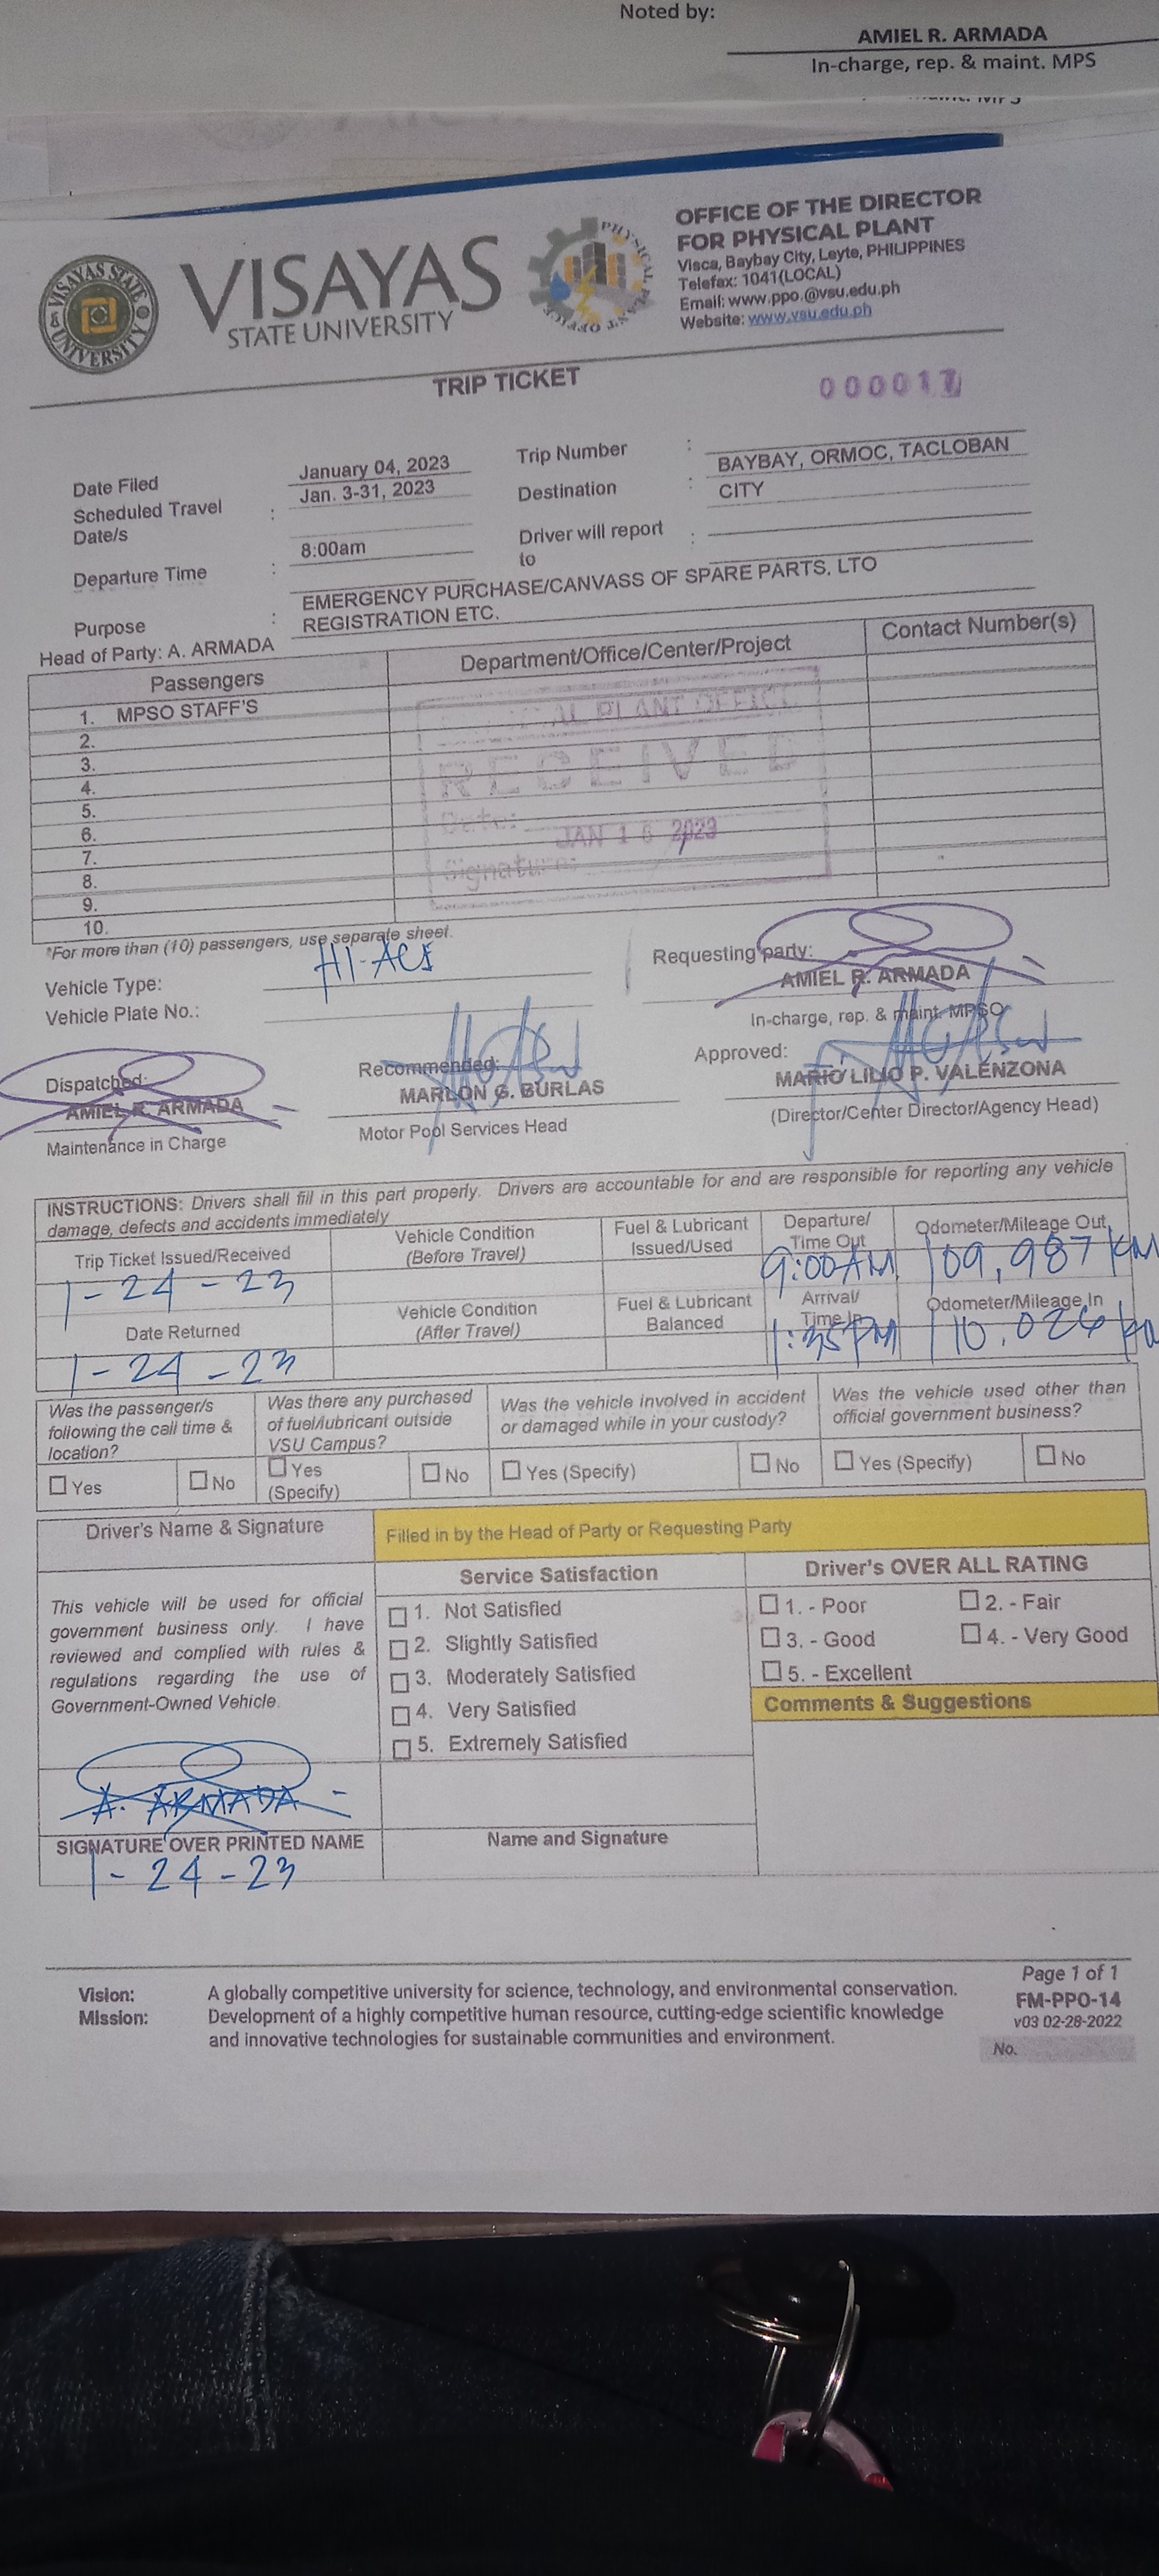 Noted by:
AMIEL R. ARMADA
In-charge, rep. & maint. MPS
VISAYAS STATE UNIVERSITY
VISAYAS
STATE UNIVERSITY
PHYSICAL PLANT OFFICE
OFFICE OF THE DIRECTOR
FOR PHYSICAL PLANT
Visca, Baybay City, Leyte, PHILIPPINES
Telefax: 1041(LOCAL)
Email: www.ppo.@vsu.edu.ph
Website: www.vsu.edu.ph
TRIP TICKET
Date Filed January 04, 2023 Trip Number :
Scheduled Travel Date/s : Jan. 3-31, 2023 Destination : BAYBAY, ORMOC, TACLOBAN CITY
Departure Time : 8:00am Driver will report to :
Purpose : EMERGENCY PURCHASE/CANVASS OF SPARE PARTS, LTO
REGISTRATION ETC.
Head of Party: A. ARMADA
Passengers Department/Office/Center/Project Contact Number(s)
1. MPSO STAFF'S
2.
3.
4.
5.
6.
7.
8.
9.
10.
PLANT OFFICE
RECEIVED
Date: JAN 16 2023
Signature:
*For more than (10) passengers, use separate sheet.
Vehicle Type: HI-ACE
Vehicle Plate No.:
Requesting party:
AMIEL R. ARMADA
In-charge, rep. & maint. MPSO
Dispatched: Recommended: Approved:
AMIEL R. ARMADA MARLON G. BURLAS MARIO LILIO P. VALENZONA
Maintenance in Charge Motor Pool Services Head (Director/Center Director/Agency Head)
INSTRUCTIONS: Drivers shall fill in this part properly. Drivers are accountable for and are responsible for reporting any vehicle
damage, defects and accidents immediately
Trip Ticket Issued/Received Vehicle Condition (Before Travel) Fuel & Lubricant Issued/Used Departure/ Time Out Odometer/Mileage Out
1-24-23 9:00AM 109,987 km
Date Returned Vehicle Condition (After Travel) Fuel & Lubricant Balanced Arrival/ Time In Odometer/Mileage In
1-24-23 1:35PM
Was the passenger/s following the call time & location?
Was there any purchased of fuel/lubricant outside VSU Campus?
Was the vehicle involved in accident or damaged while in your custody?
Was the vehicle used other than official government business?
☐ Yes ☐ No ☐ Yes (Specify) ☐ No ☐ Yes (Specify) ☐ No ☐ Yes (Specify) ☐ No
Driver's Name & Signature Filled in by the Head of Party or Requesting Party
Service Satisfaction Driver's OVER ALL RATING
This vehicle will be used for official
government business only. I have
reviewed and complied with rules &
regulations regarding the use of
Government-Owned Vehicle.
☐ 1. Not Satisfied
☐ 2. Slightly Satisfied
☐ 3. Moderately Satisfied
☐ 4. Very Satisfied
☐ 5. Extremely Satisfied
☐ 1. - Poor ☐ 2. - Fair
☐ 3. - Good ☐ 4. - Very Good
☐ 5. - Excellent
Comments & Suggestions
A. ARMADA
SIGNATURE OVER PRINTED NAME Name and Signature
1-24-23
Vision: A globally competitive university for science, technology, and environmental conservation.
Mission: Development of a highly competitive human resource, cutting-edge scientific knowledge
and innovative technologies for sustainable communities and environment.
Page 1 of 1
FM-PPO-14
v03 02-28-2022
No.